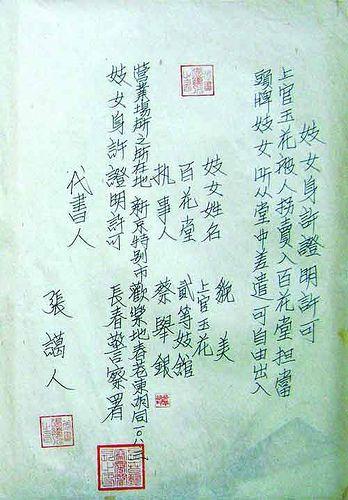 妓女身許證明許可
上官玉花被人拐賣入百花堂担當
頭牌妓女所从堂中差遣可自由出入
妓女姓名 上官玉花 貌美
百花堂 貳等妓館
执事人 蔡舉銀
營業場所之所在地 新京特别市歡樂地春巷東胡同一〇八三
妓女身許證明許可 長春警察署
代書人 張謁人